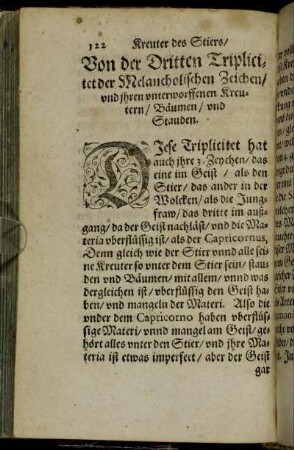 122 Kreuter des Stiers/
Von der Dritten Triplici-
tet der Melancholischen Zeichen/
vnd jhren vnterworffenen Kreu-
tern/ Bäumen/ vnd
Stauden.
DJese Triplicitet hat
auch jhre 3. Zeychen/ das
eine im Geist / als den
Stier/ das ander in der
Wolcken/ als die Jung-
fraw/ das dritte im auß-
gang/ da der Geist nachläst/ vnd die Ma-
teria vberflüssig ist/ als der Capricornus,
Denn gleich wie der Stier vnnd alle sei-
ne Kreuter so vnter dem Stier sein/ stau-
den vnd Bäumen/ mit allem/ vnnd was
dergleichen ist/ vberflüssig den Geist ha-
ben/ vnd mangeln der Materi. Also die
vnder dem Capricorno haben vberflüs-
sige Materi/ vnnd mangel am Geist/ ge-
hört alles vnter den Stier/ vnd jhre Ma-
teria ist etwas imperfect/ aber der Geist
gar